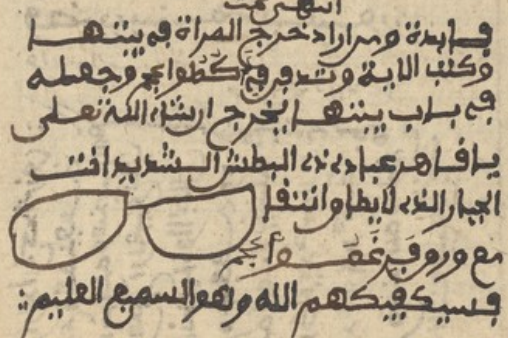 انتهى
فايدة ومن اراد خرج المراة في بيتها
وكتب الاية وتدفن في وجعله
في باب بيتها يخرج ان شاء الله تعلى
يا قاهر عبادى ذى البطش الشديد انت
الجبار الذى لا يطاو انتقا
مع وروى
فسيكفيكهم الله وهو السميع العليم